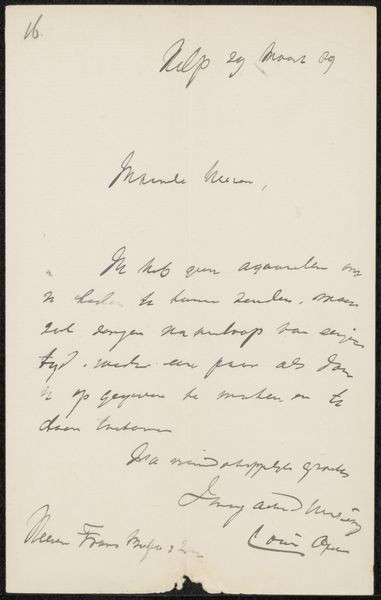 16.
Velp 29 Maart 89
Waarde Heeren,
Ik heb geen aquarellen om
U te kunnen zenden, maar
zal zorgen na verloop van eenigen
tijd, weder een paar als door
U op gegeven te maken en te
doen toekomen
Na vriendschappelijke groeten
Louis Apol
Heeren Frans Buffa & Zonen